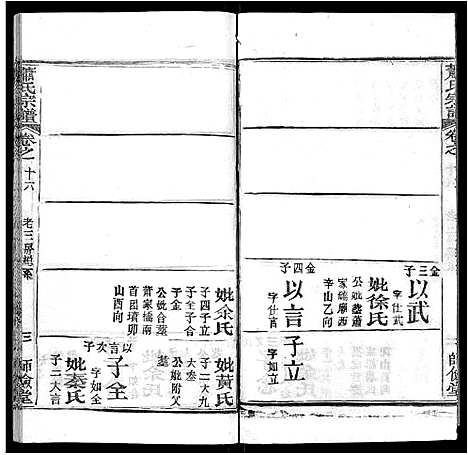 蕭氏宗譜
卷之
金三子
以武
字仕武
妣徐氏
公妣葬蕭
家壠廖西
辛山乙向
金四子
以言
字仕言
子立
字如立
師儉堂
妣余氏
子四子立
子全子合
子金
公妣合墓
蕭家橋南
首團墳卯
山酉向
妣黃氏
子二大九
大叁
公妣附父
墓
以言次子
子全
字如全
妣秦氏
子二大言
蕭氏宗譜
卷之十六
老三房總系
三
師儉堂